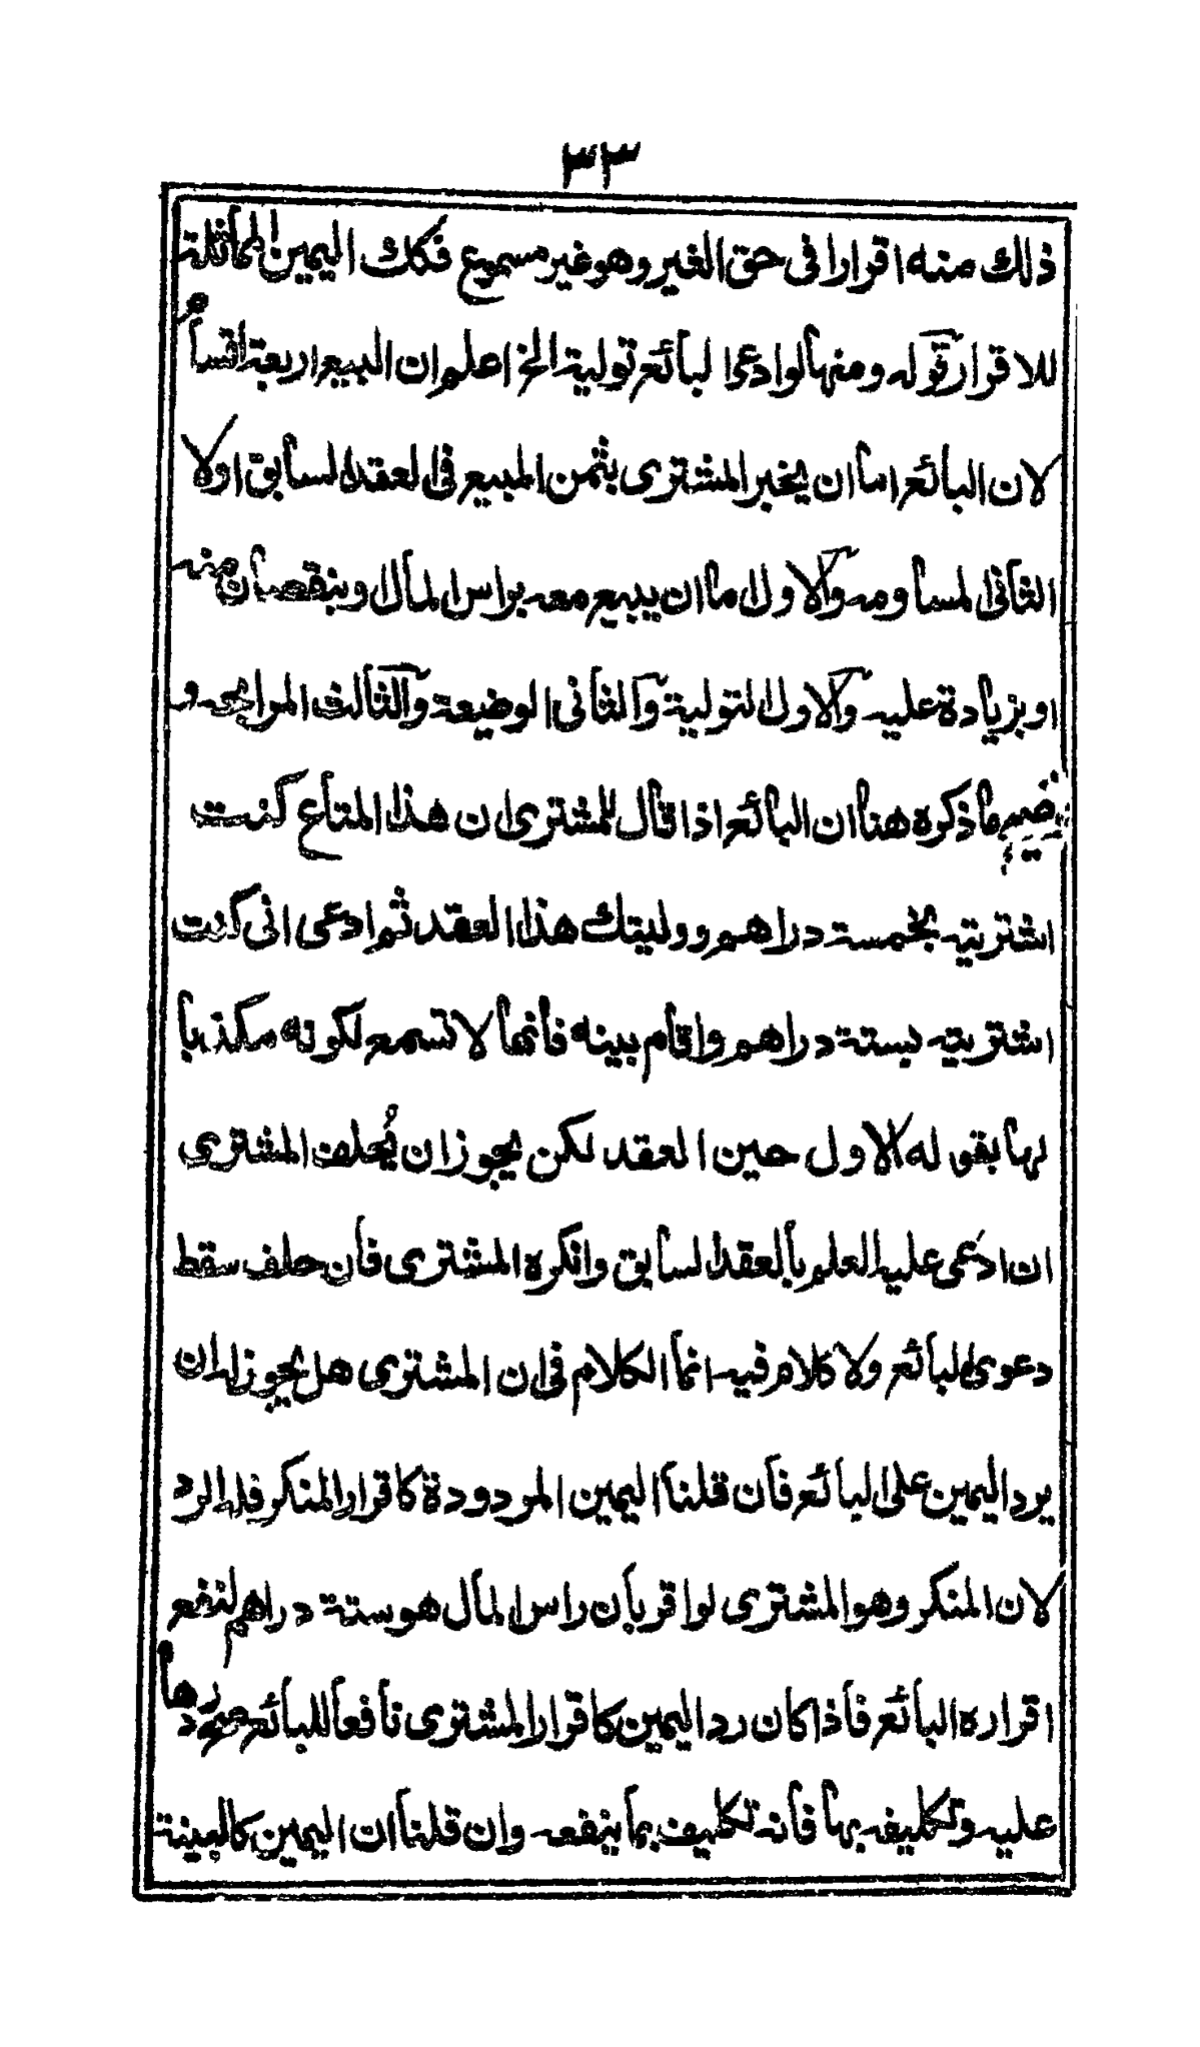 ٣٣
ذلك منه اقرارا فى حق الغير وهو غير مسموع فكك اليمين المماثلة
للاقرار قوله ومنها لو ادعى البائع تولية الخ اعلم ان البيع اربعة اقسام
لان البائع اما ان يخبر المشترى بثمن المبيع فى العقد السابق اولا
الثانى المساومه والاول اما ان يبيع معه براس المال وبنقصان منه
او بزيادة عليه والاول التولية والثانى الوضيعة والثالث المرابحه و
ما ذكره هنا ان البائع اذا قال للمشترى ان هذا المتاع كنت
اشتريته بخمسة دراهم ووليتك هذا العقد ثم ادعى انى كنت
اشتريته بستة دراهم واقام بينه فانها لا تسمع لكونه مكذبا
لها بقوله الاول حين العقد لكن يجوز ان يُحلف المشترى
ان ادعى عليه العلم بالعقد السابق وانكره المشترى فان حلف سقط
دعوى البائع ولا كلام فيه انما الكلام فى ان المشترى هل يجوز له ان
يرد اليمين على البائع فان قلنا اليمين المردودة كاقرار المنكر فله الرد
لان المنكر وهو المشترى لو اقر بان راس المال هو ستة دراهم لنفع
اقراره البائع فاذا كان رد اليمين كاقرار المشترى نافعا للبائع صح ردها
عليه وتكليفه بها فانه تكليف بما ينفعه وان قلنا ان اليمين كالبينة